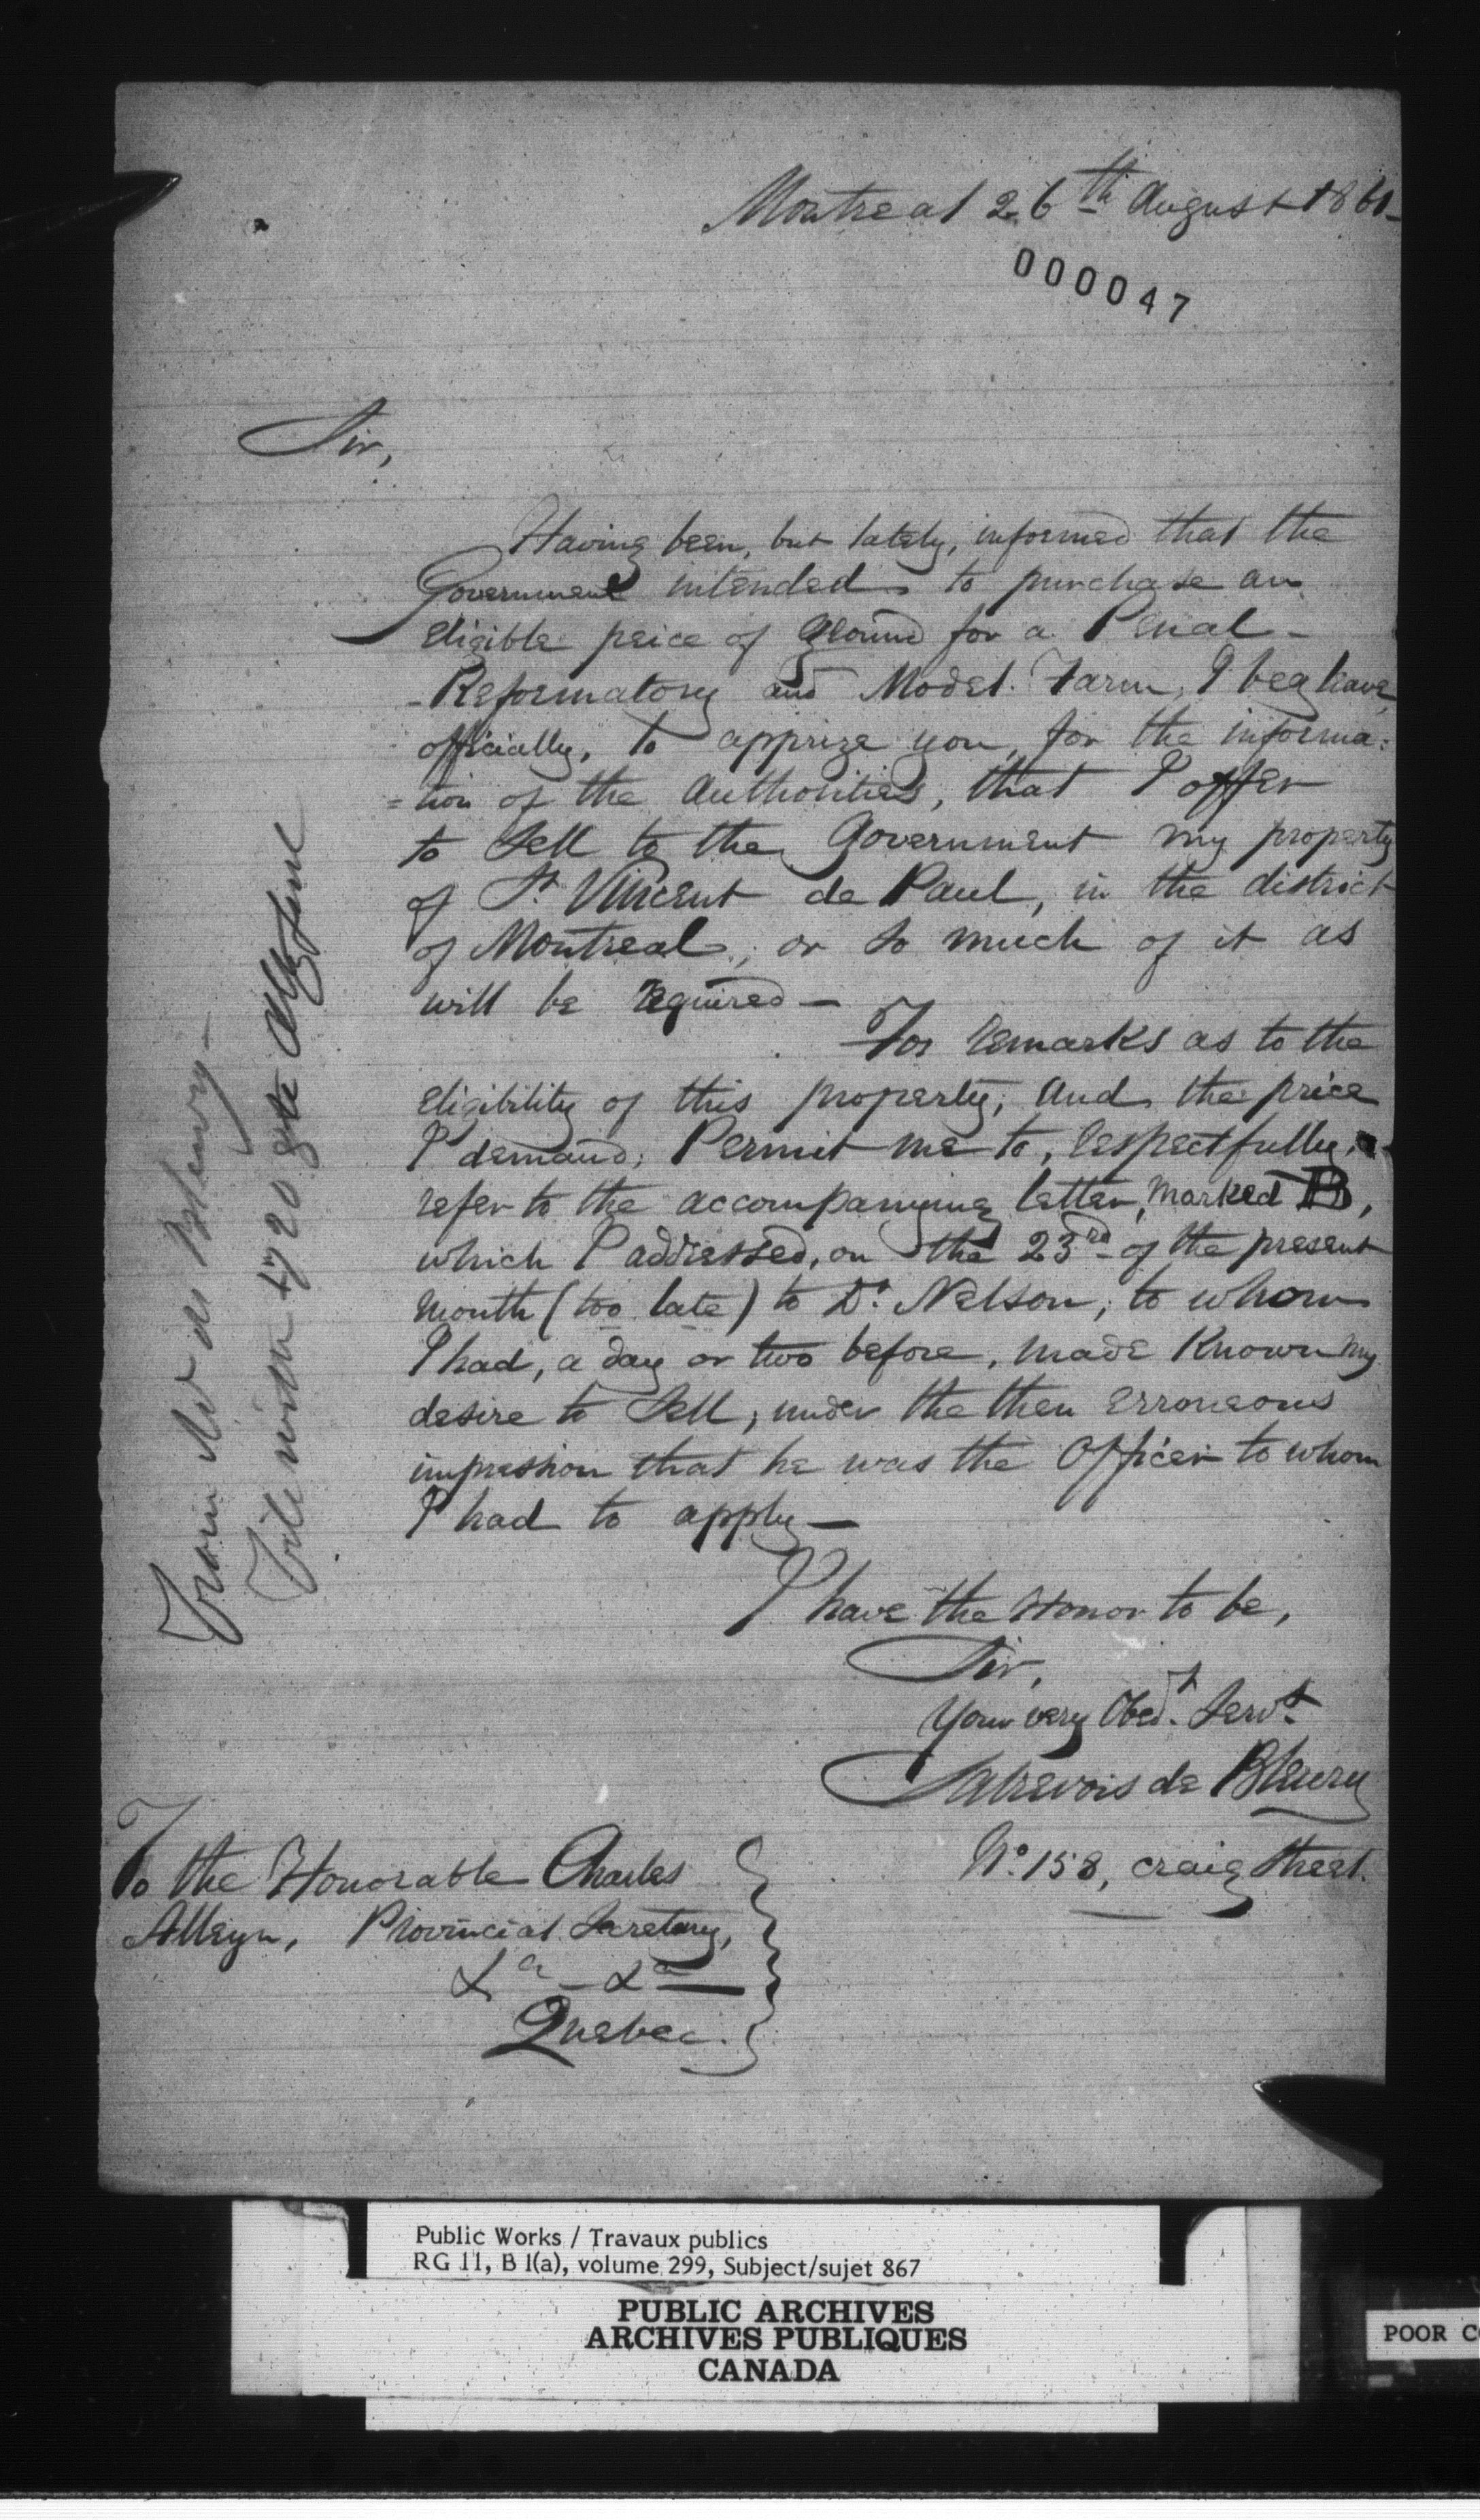 Montreal 26th August 1861-
000047
Sir,
Having been, but lately, informed that the
Government intended to purchase an
eligible peice of ground for a Penal-
-Reformatory and Model Farm, I beg leave,
officially, to apprize you, for the informa=
=tion of the Authorities, that I offer
to sell to the Government my property
of St. Vincent de Paul, in the district
of Montreal, or so much of it as
will be required—
For remarks as to the
eligibility of this property, and the price
I demand, Permit me to, respectfully,
refer to the accompanying letter, marked B,
which I addressed, on the 23rd of the present
month (too late) to Dr. Nelson, to whom
I had, a day or two before, made known my
desire to sell, under the then erroneous
impression that he was the Officer to whom
I had to apply—
I have the Honor to be,
Sir,
Your very Obedt. Servt.
Sabrevois de Bleury
No. 158, craig street.
To the Honorable Charles
Alleyn, Provincial Secretary,
&a - &a —
Quebec.
From Mr de Bleury-
File with
Public Works / Travaux publics
RG 11, B 1(a), volume 299, Subject/sujet 867
PUBLIC ARCHIVES
ARCHIVES PUBLIQUES
CANADA
POOR